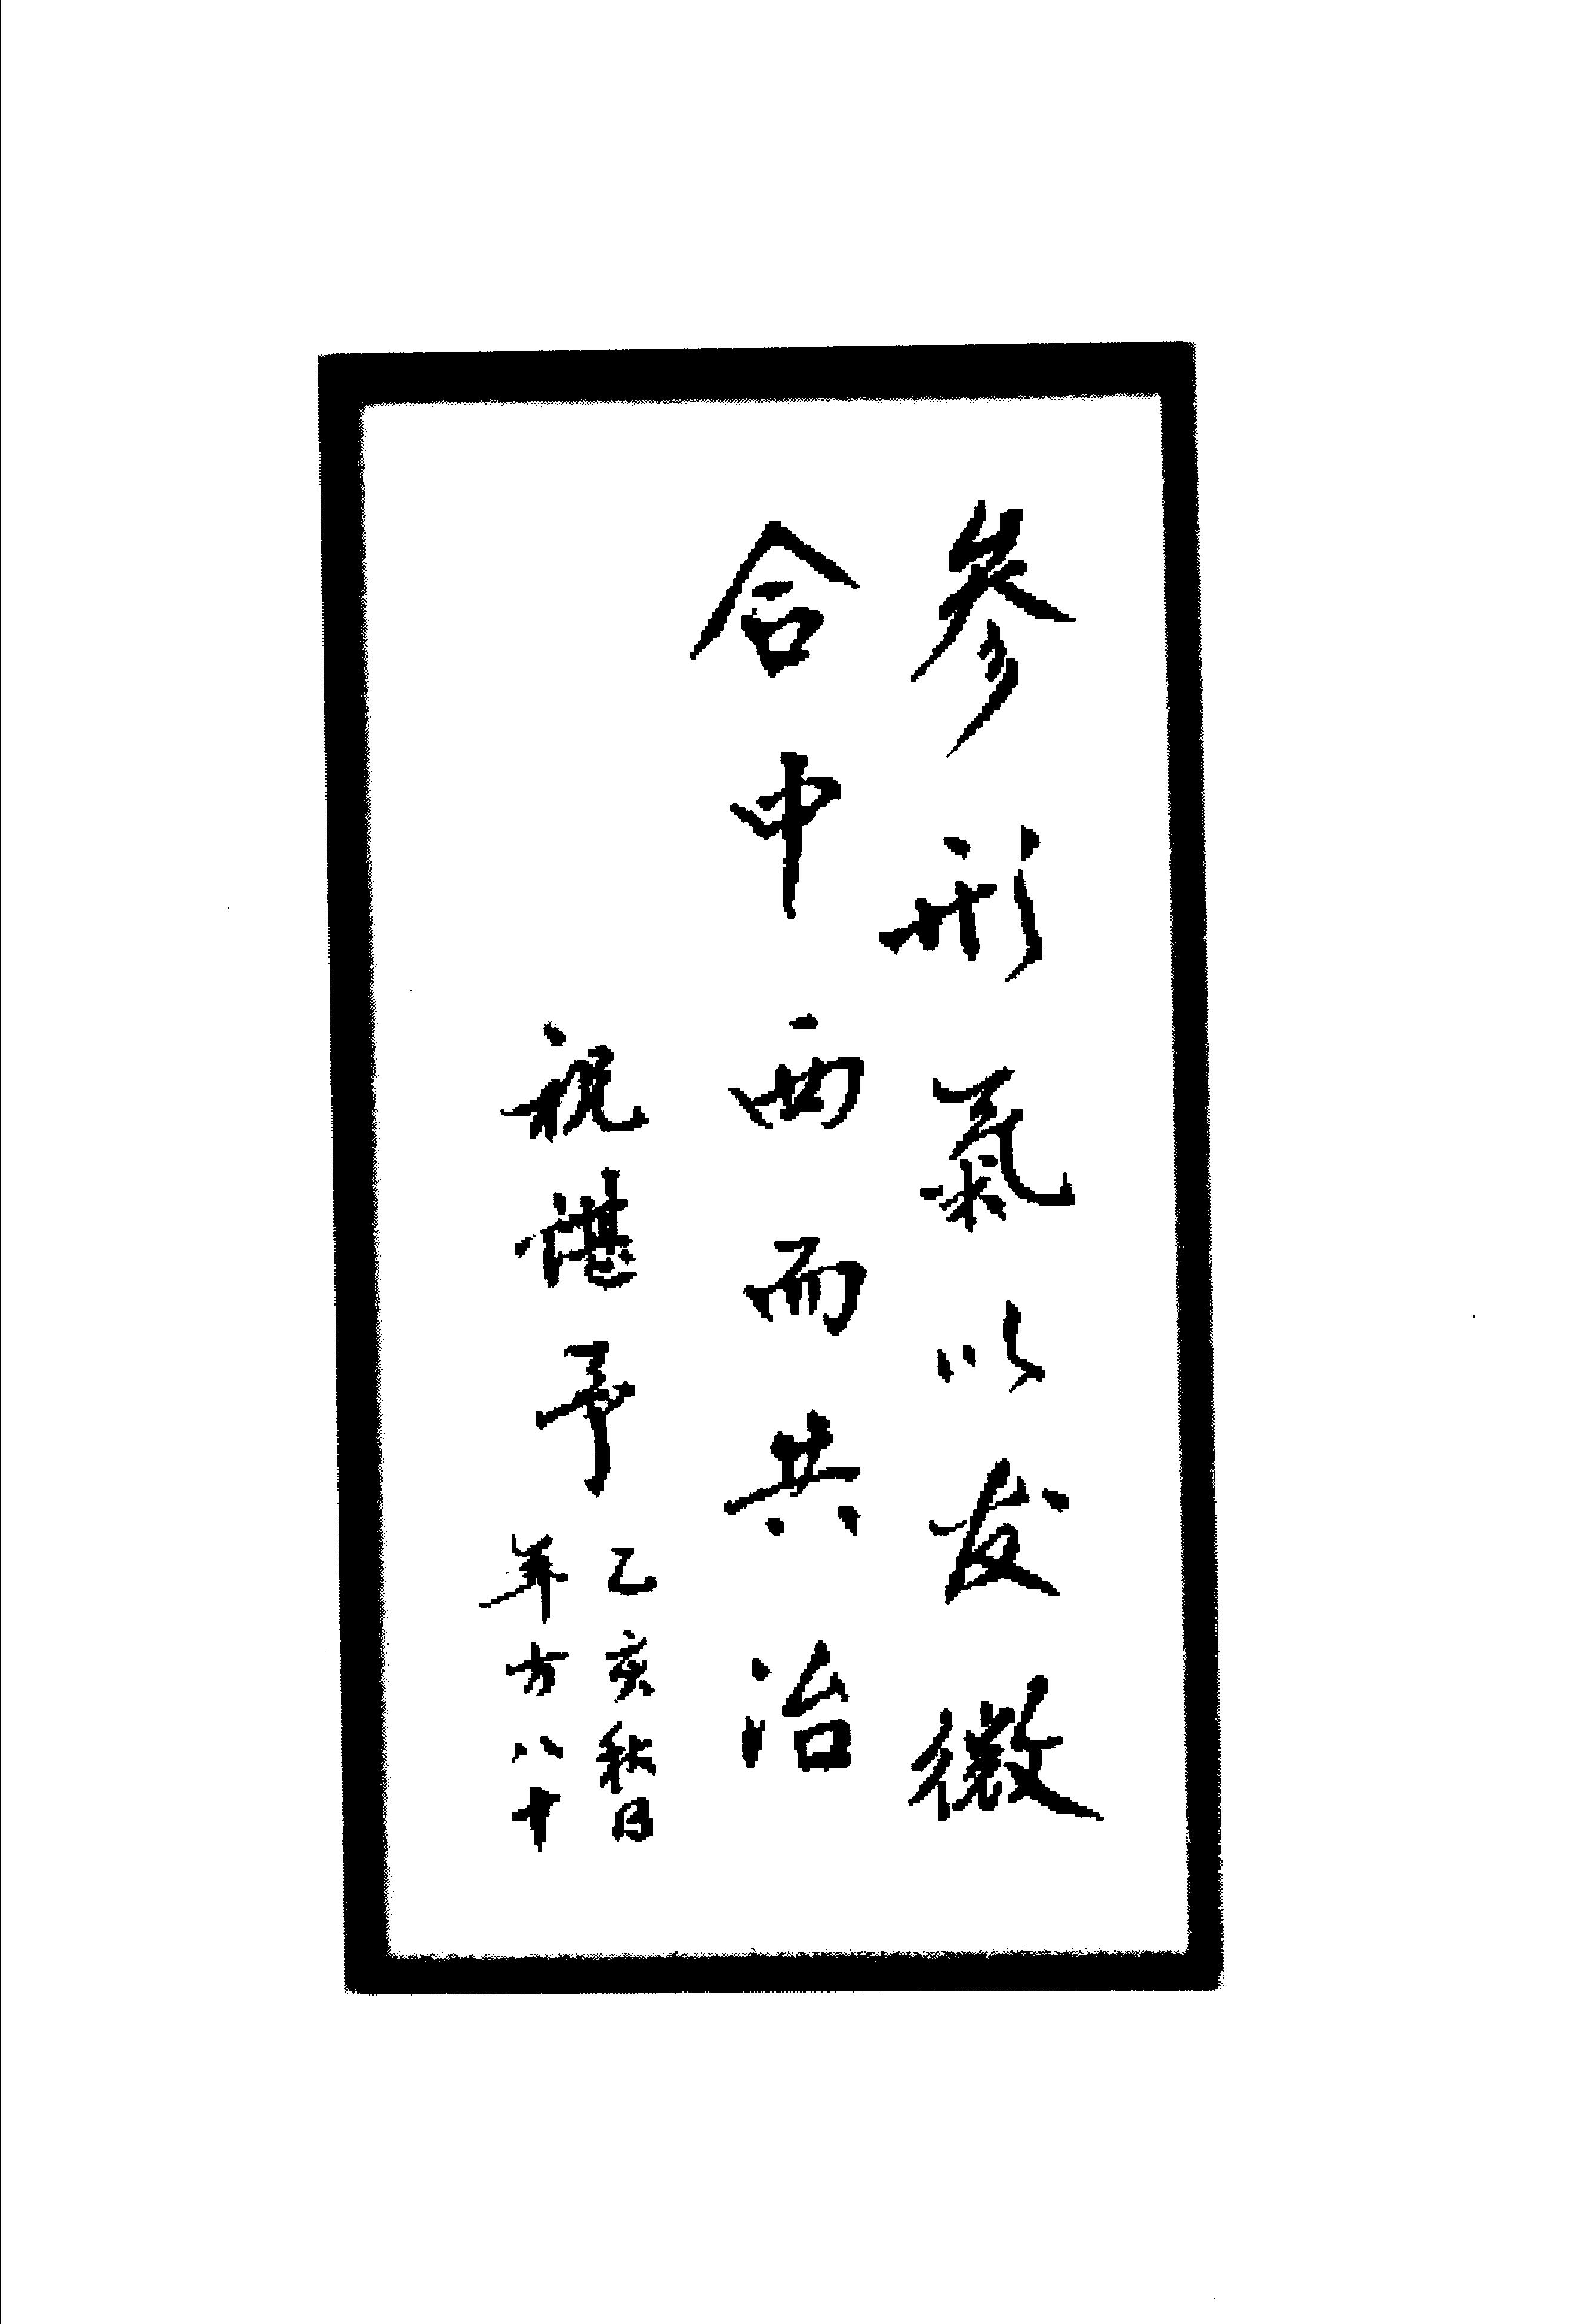 參形氣以发微
合中西而共治
祝谌予
乙亥秋日
年方八十